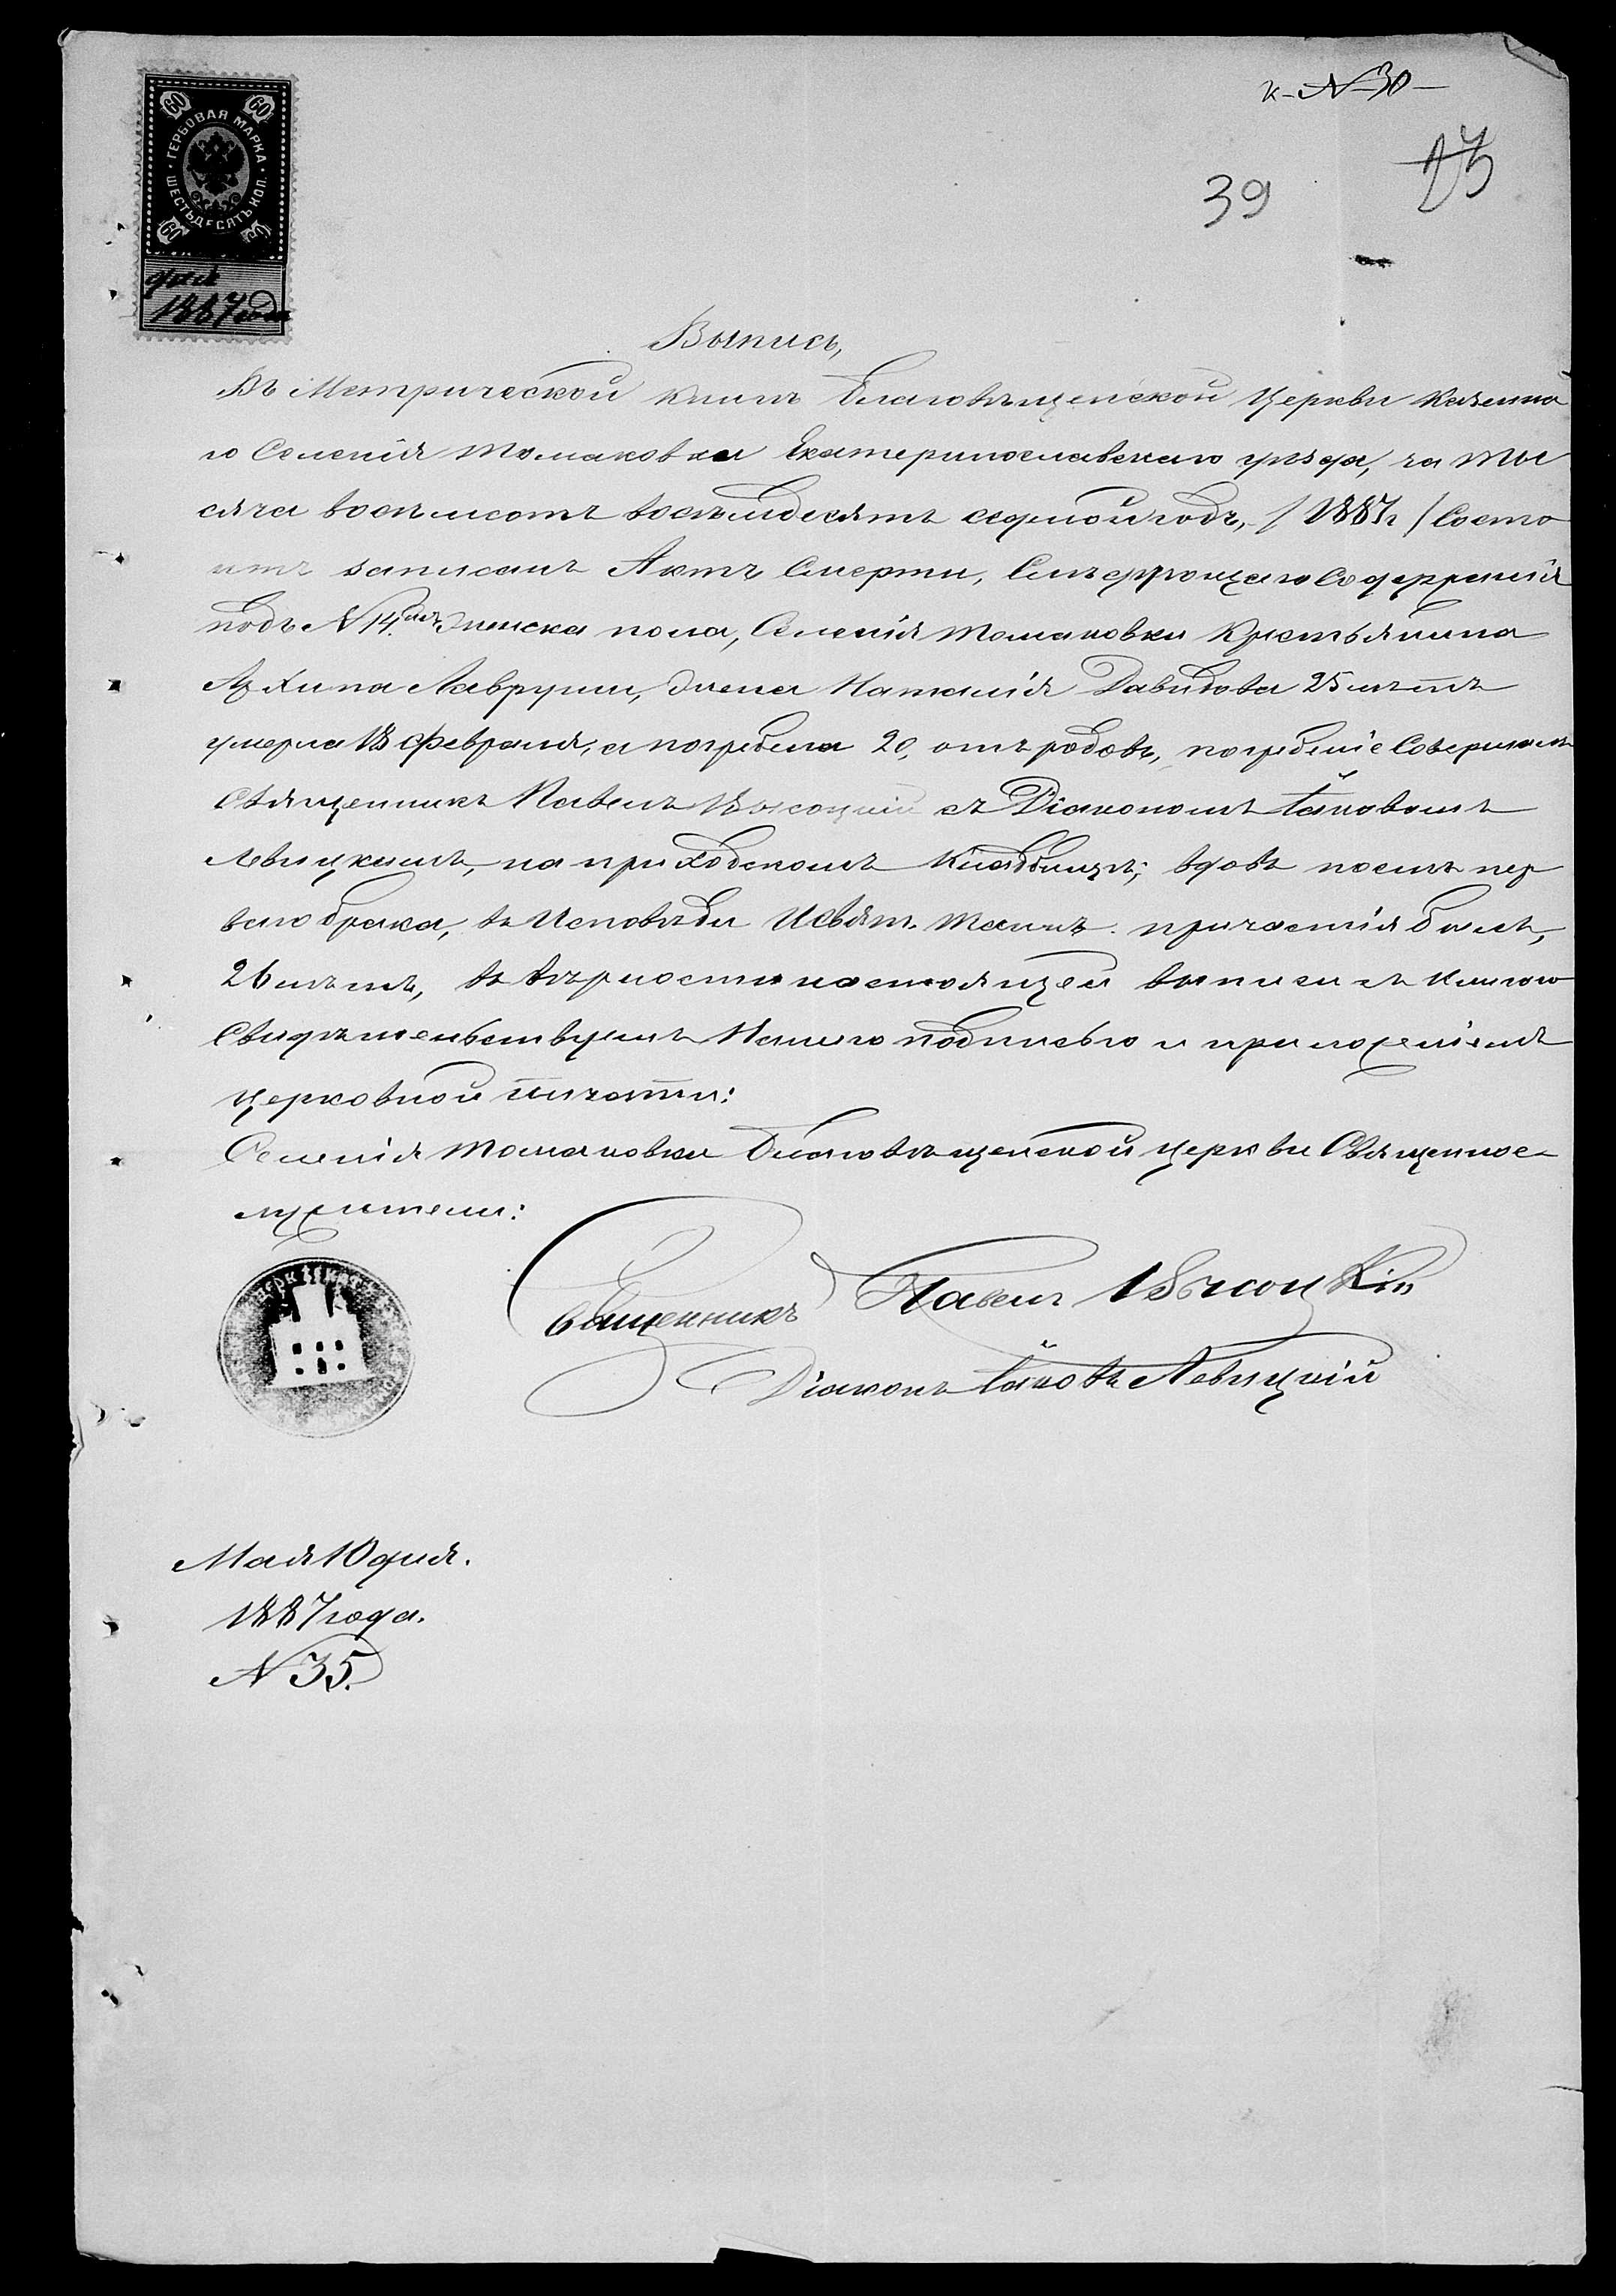 к-№30-
39
ГЕРБОВАЯ МАРКА
ШЕСТЬДЕСЯТЪ КОП.
60 60
60 60
дня
1887 года
Выпись,
Въ Метрической книгѣ Благовѣщенской Церкви казенна
го Селенія Томаковки Екатеринославскаго уѣзда, за ты
сяча восемьсотъ восемьдесятъ седмой годъ, /1887г/ Состо
итъ записанъ Актъ Смерти, Слѣдующаго Содержанія
подъ №14.мъ Женска пола, Селенія Томаковки Крестьянина
Архипа Лавруши, Жена Наталія Давидова 25 лѣтъ
умерла 18 февраля, а погребена 20, отъ родовъ, погребеніе Совершалъ
Священникъ Павелъ Высоцкій съ Діакономъ Іаковомъ
Левицкимъ, на приходскомъ кладбищѣ; вдовъ послѣ пер
ваго брака, въ Исповѣди и Свят. Таинъ причастія былъ,
26 лѣтъ, въ вѣрности настоящей выписи съ Книгою
Свидѣтельствуемъ Нашею подписью и приложеніемъ
церковной печати:
Селенія Томаковки Благовѣщенской церкви Священнос-
лужители:
Священникъ Павелъ Высоцкій
Діаконъ Іаковъ Левицкій
Мая 10 дня.
1887 года.
№35.